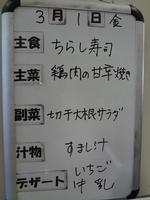 3月1日金
主食 ちらし寿司
主菜 鶏肉の甘辛焼き
副菜 切干大根サラダ
汁物 すまし汁
デザート いちご
牛乳